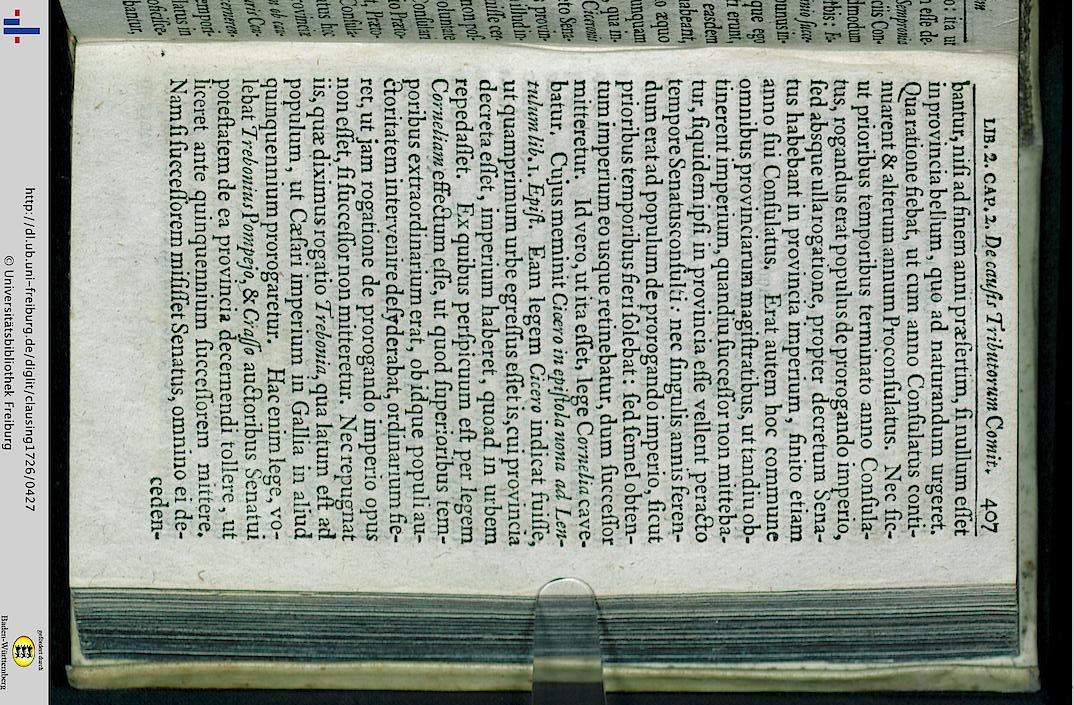 LIB. 2. CAP. 2. De causis Tributorum Comit. 407
bantur, nisi ad finem anni præsertim, si nullum esset
in provincia bellum, quo ad naturandum urgeret.
Qua ratione fiebat, ut cum anno Consulatus conti-
nuarent & alterum annum Proconsulatus. Nec sic-
ut prioribus temporibus terminato anno Consula-
tus, rogandus erat populus de prorogando imperio,
sed absque ulla rogatione, propter decretum Sena-
tus habebant in provincia imperium, finito etiam
anno sui Consulatus. Erat autem hoc commune
omnibus provinciarum magistratibus, ut tandiu ob-
tinerent imperium, quandiu successor non mitteba-
tur, siquidem ipsi in provincia esse vellent peracto
tempore Senatusconsulti: nec singulis annis feren-
dum erat ad populum de prorogando imperio, sicut
prioribus temporibus fieri solebat: sed semel obten-
tum imperium eo usque retinebatur, dum successor
mitteretur. Id vero, ut ita esset, lege Cornelia cave-
batur. Cujus meminit Cicero in epistola nona ad Len-
tulum lib. 1. Epist. Eam legem Cicero indicat fuisse,
ut quamprimum urbe egressus esset is, cui provincia
decreta esset, imperium haberet, quoad in urbem
repedasset. Ex quibus perspicuum est per legem
Corneliam effectum esse, ut quod superioribus tem-
poribus extraordinarium erat, ob idque populi au-
ctoritatem intervenire desyderabat, ordinarium fie-
ret, ut jam rogatione de prorogando imperio opus
non esset, si successor non mitteretur. Nec repugnat
iis, quæ diximus rogatio Trebonia, qua latum est ad
populum, ut Cæsari imperium in Gallia in aliud
quinquennium prorogaretur. Hac enim lege, vo-
lebat Trebonius Pompejo, & Crasso auctoribus Senatui
potestatem de ea provincia decernendi tollere, ut
liceret ante quinquennium successorem mittere.
Nam si successorem misisset Senatus, omnino ei de-
ceden-
http://dl.ub.uni-freiburg.de/diglit/clausing1726/0427
© Universitätsbibliothek Freiburg
gefördert durch
Baden-Württemberg